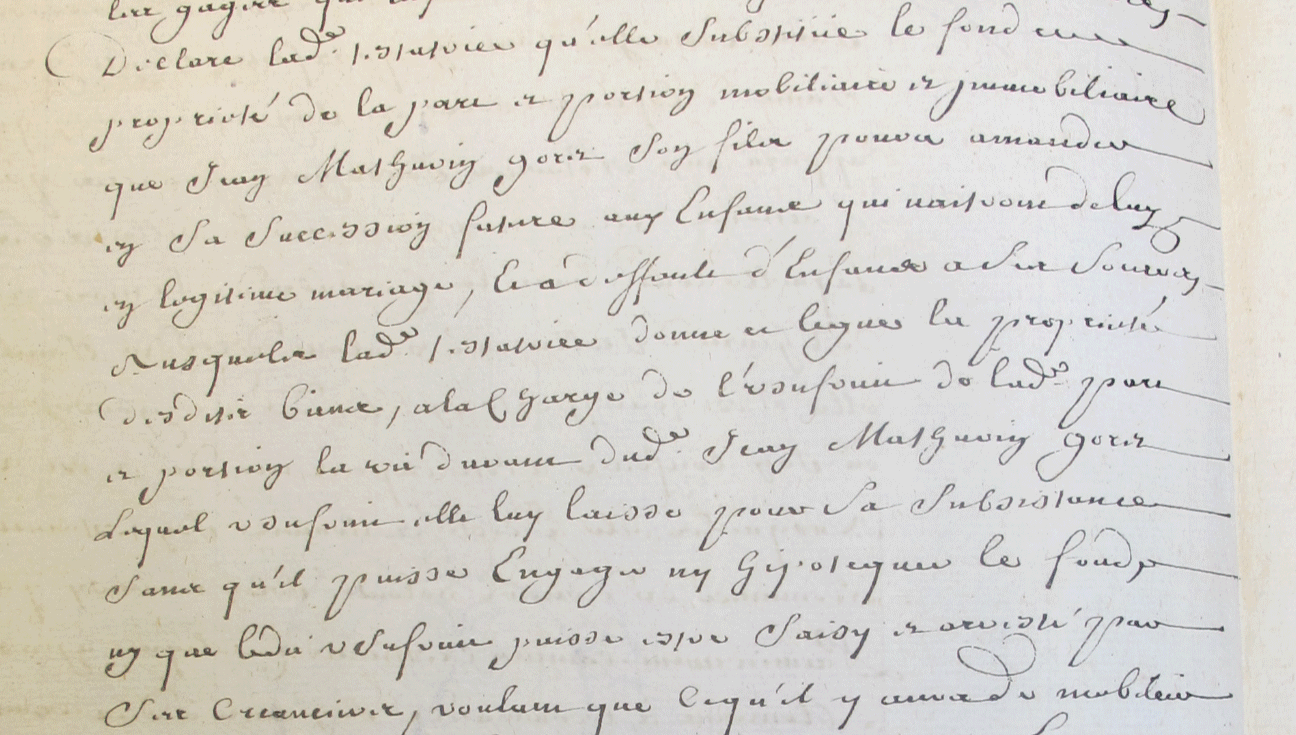 Declare lad.e testatrice qu'elle Substitüe le fond en
proprieté de la part et portion mobiliaire et jmmobiliaire
que Jean Mathurin goret Son fils poura amander
en Sa Succession future aux Enfans qui naitront deluy
en legitime mariage, Et a deffault d'Enfans a Ses Soeurs,
Ausquelles lad.e testatrice donne et legue la proprieté
desdits biens, alaCharge de l'Vsufruit de lad.e part
et portion la vie durant dud.e Jean Mathurin goret
Lequel vsufruit elle luy laisse pour Sa Subsistance
Sans qu'il puisse Engager ny hipotequer le fonds
ny que ledit vsufruit puisse estre Saisy et arresté par
Ses Creanciers, voulant que Cequ'il y aura de mobilier